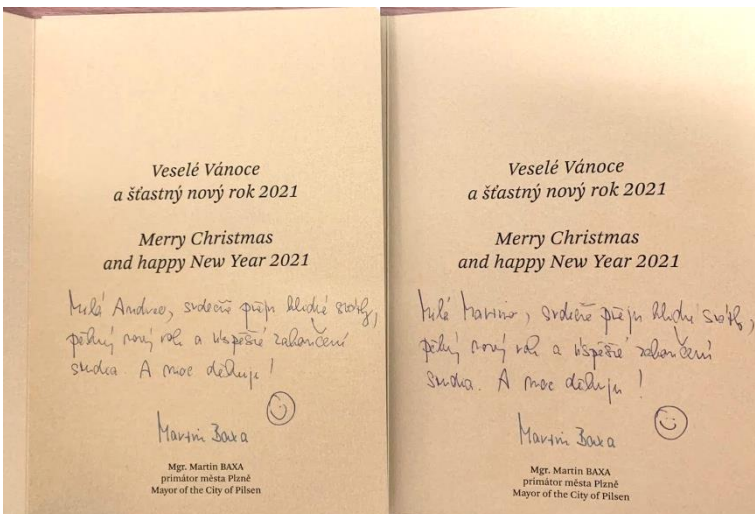 Veselé Vánoce
a šťastný nový rok 2021
Merry Christmas
and happy New Year 2021
Milá Andreo, srdečně přeju klidné svátky,
pěkný nový rok a úspěšné zakončení
studia. A moc děkuju!
Martin Baxa
Mgr. Martin BAXA
primátor města Plzně
Mayor of the City of Pilsen
Veselé Vánoce
a šťastný nový rok 2021
Merry Christmas
and happy New Year 2021
Milá Marino, srdečně přeju klidné svátky,
pěkný nový rok a úspěšné zakončení
studia. A moc děkuju!
Martin Baxa
Mgr. Martin BAXA
primátor města Plzně
Mayor of the City of Pilsen